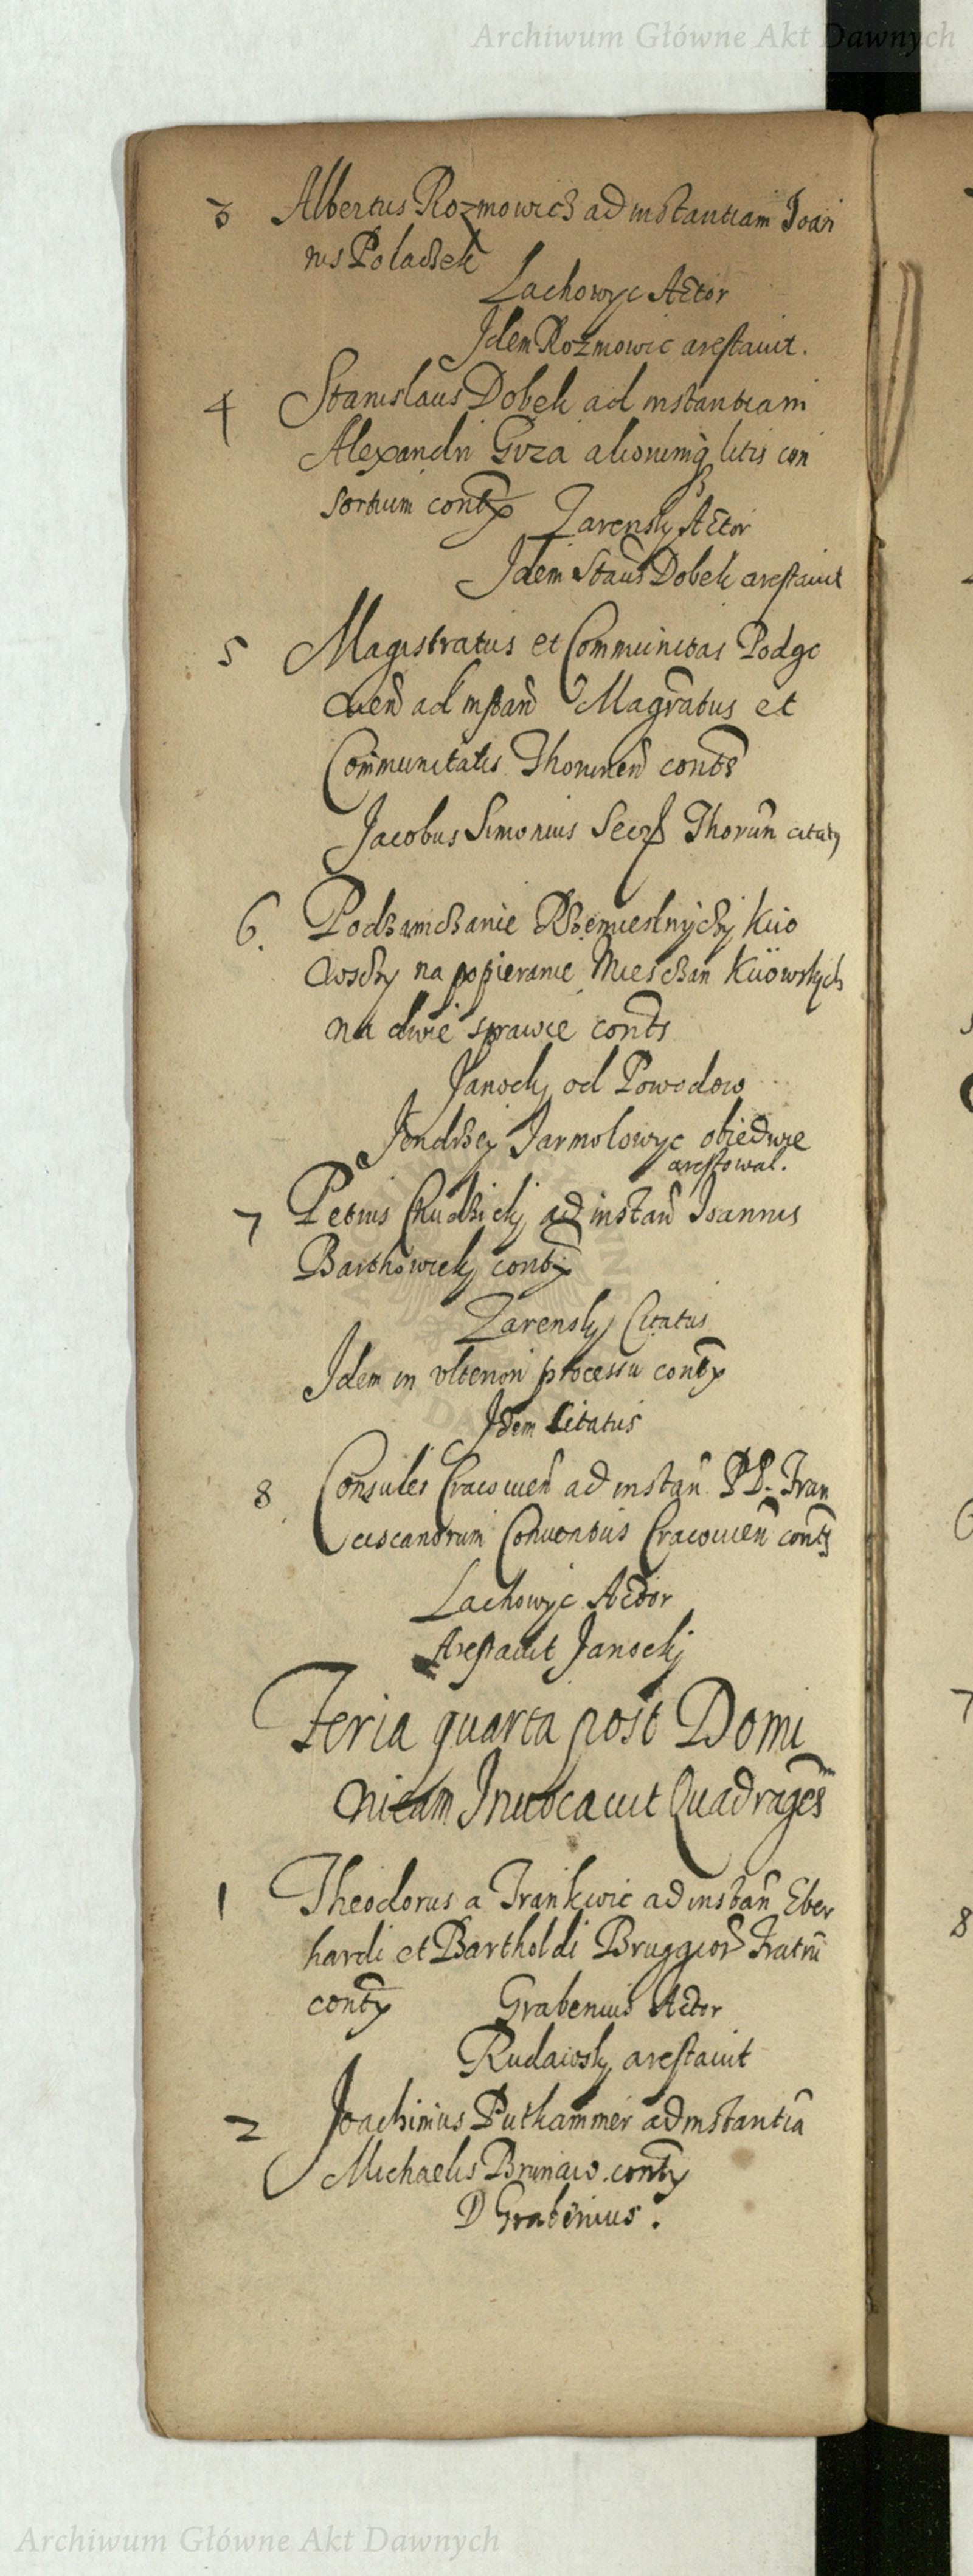 Archiwum Główne Akt Dawnych
3 Albertus Rozmowicz ad instantiam Joan
nis Polaczek
Lachowyc Actor
Idem Rozmowic arestavit.
4 Stanislaus Dobek ad instantiam
Alexandri Guza aliorumq litis con
sortium contx
Zarensky Actor
Idem Staus Dobek arestavit
5 Magistratus et Communitas Podgo
ad instan Magratus et
Communitatis Thorunen conts
Jacobus Simonius Secrs Thorun citaty
6. Podzamczanie Rzemieslnyczy Kiio
wsczy na popieranie Miesczan Kiiowskych
na dwie sprawie conts
Janocky od Powodow
Jendrzey Jarmolowyc obiedwie
arestowal.
7 Petrus Chudzicky ad instan Joannis
Barthowicky contx
Zarensky Citatus
Idem in ulteriori processu contx
Idem Citatus
8 Consules Cracovien ad instan PP. Fran
ciscanorum Conventus Cracovien conts
Lachowyc Actor
Arestavit Janockj
Feria quarta post Domi
nicam Invocavit Quadrages
1 Theodorus a Frankwic ad instan Eber
hardi et Bartholdi Bruggior Fratru
contx
Grabenius Actor
Rudawsky arestavit
2 Joachimus Putkammer ad instantia
Michaelis Brunaw contx
D Grabenius.
Archiwum Główne Akt Dawnych